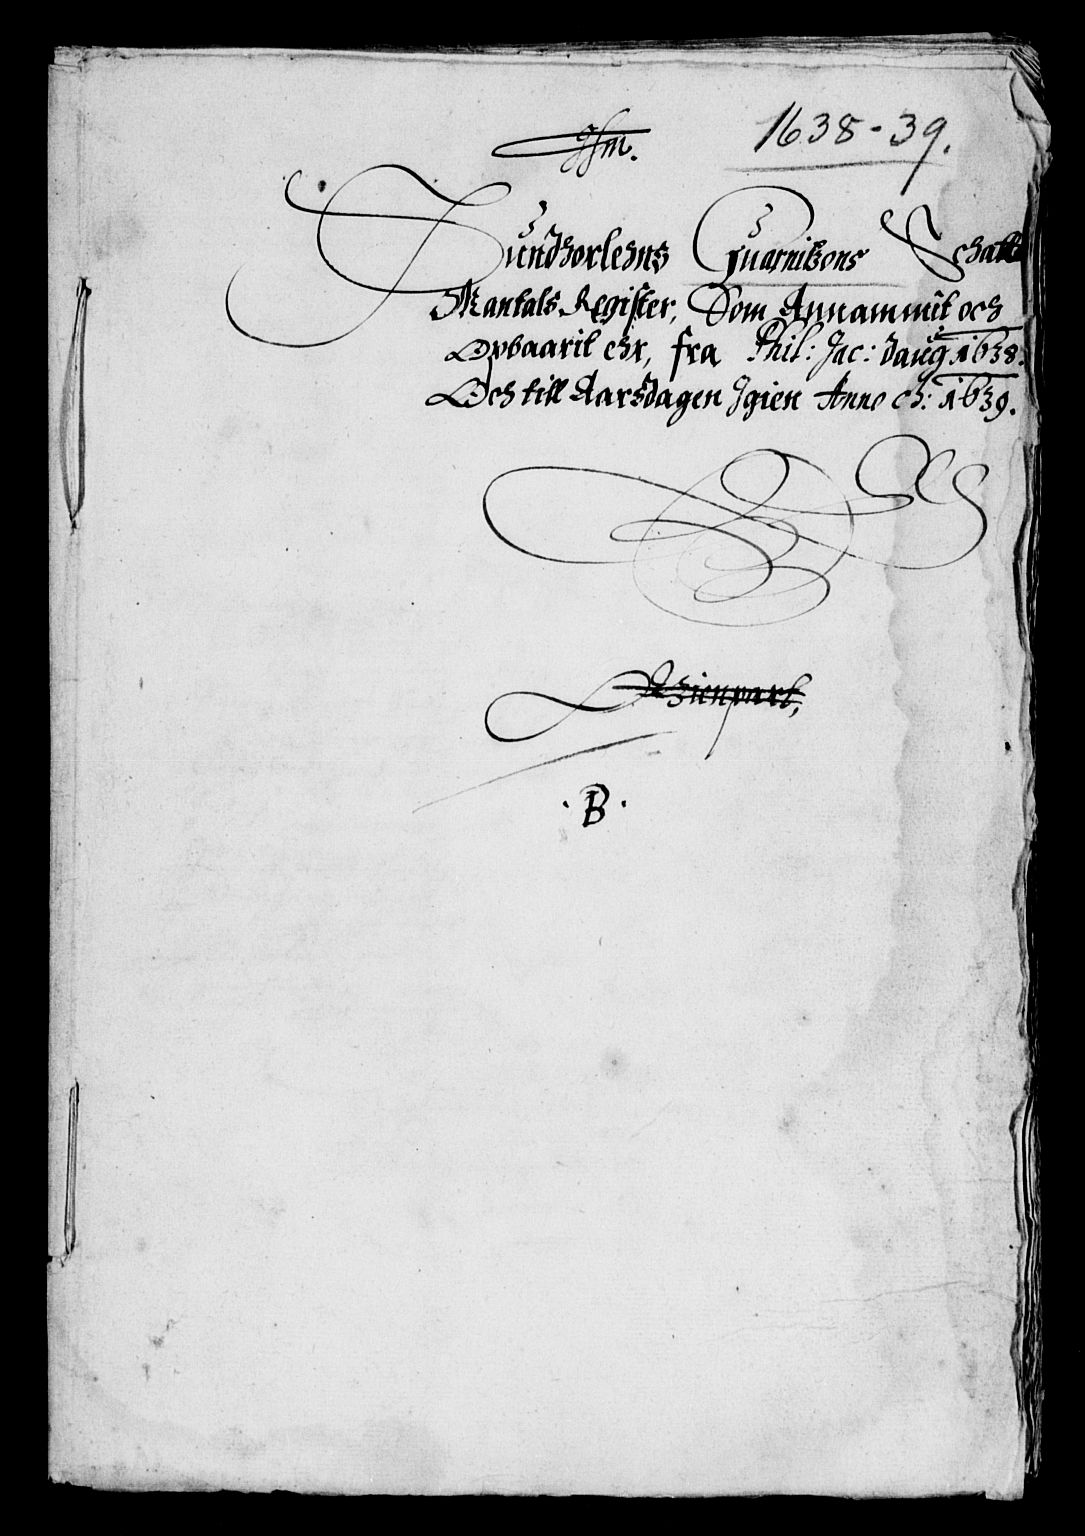 1638-39.
Jhm.
Sundhorlehns Guarnitzons Schatt
Mantals Register, Som Annammit och
Opbaarit ehr, fra Phil: Jac: daug 1638.
Och till Aarsdagen Jgien Anno ch: 1639.
Gienpart,
. B .